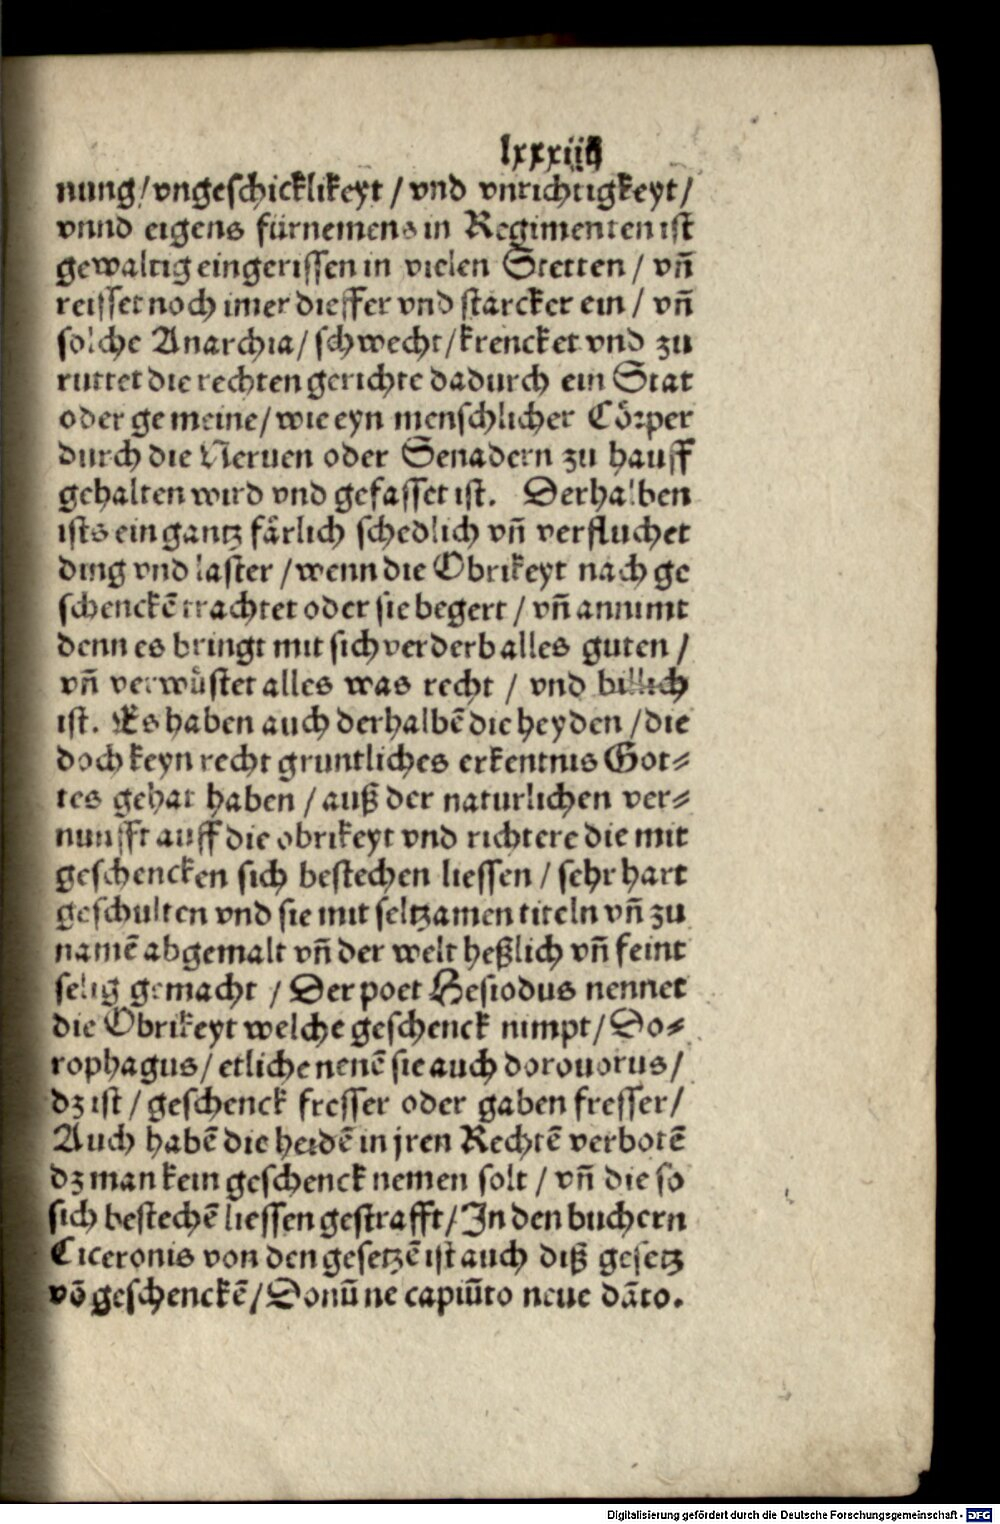 lxxxiiij
nung/ vngeschicklikeyt / vnd vnrichtigkeyt/
vnnd eigens fürnemens in Regimenten ist
gewaltig eingerissen in vielen Stetten / vñ
reisset noch imer dieffer vnd starcker ein / vñ
solche Anarchia/ schwecht/ krencket vnd zu
ruttet die rechten gerichte dadurch ein Stat
oder gemeine/ wie eyn menschlicher Cörper
durch die Neruen oder Senadern zu hauff
gehalten wird vnd gefasset ist. Derhalben
ists ein gantz fårlich schedlich vñ verfluchet
ding vnd laster / wenn die Obrikeyt nach ge
schenckē trachtet oder sie begert / vñ annimt
denn es bringt mit sich verderb alles guten /
vñ verwůstet alles was recht / vnd billich
ist. Es haben auch derhalbē die heyden / die
doch keyn recht gruntliches erkentnis Got⸗
tes gehat haben / auß der naturlichen ver⸗
nunfft auff die obrikeyt vnd richtere die mit
geschencken sich bestechen liessen / sehr hart
geschulten vnd sie mit seltzamen titeln vñ zu
namē abgemalt vñ der welt heßlich vñ feint
selig gemacht / Der poet Hesiodus nennet
die Obrikeyt welche geschenck nimpt/ Do⸗
rophagus/ etliche nenē sie auch dorouorus/
dz ist / geschenck fresser oder gaben fresser/
Auch habē die heidē in jren Rechtē verbotē
dz man kein geschenck nemen solt / vñ die so
sich bestechē liessen gestrafft/ In den buchern
Ciceronis von den gesetzē ist auch diß gesetz
võ geschenckē/ Donū ne capiūto neue dāto.
Digitalisierung gefördert durch die Deutsche Forschungsgemeinschaft - DFG